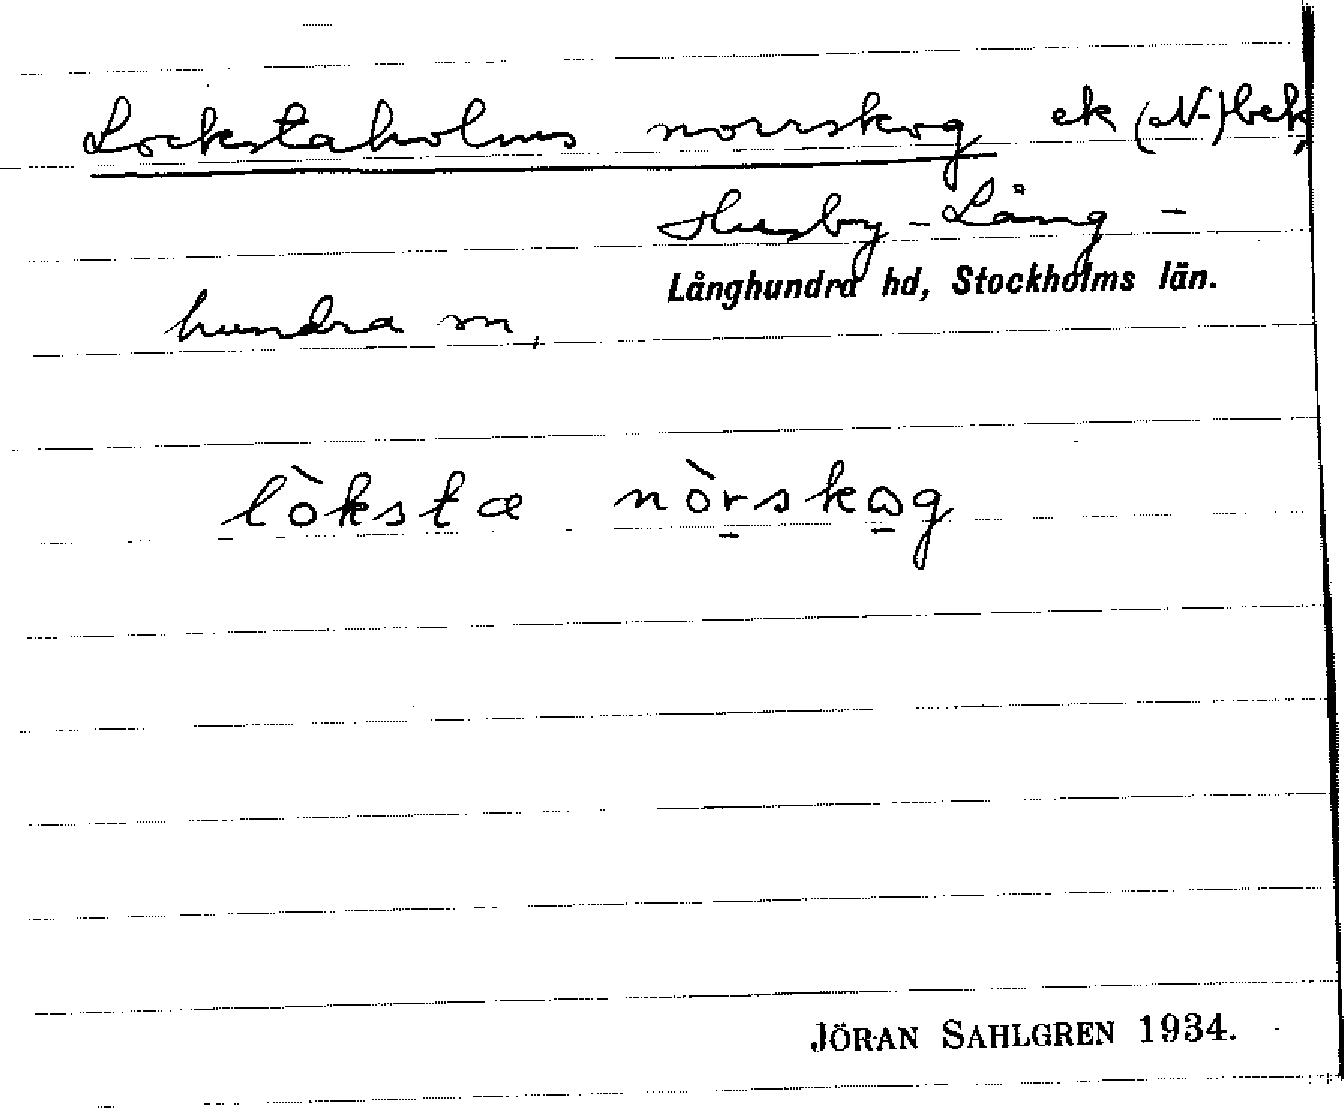 Lockstaholms norrskog ek (N-)bek,
Husby-Lång-
Långhundra hd, Stockholms län.
hundra sn,
lòksta nòrskωg
JÖRAN SAHLGREN 1934.